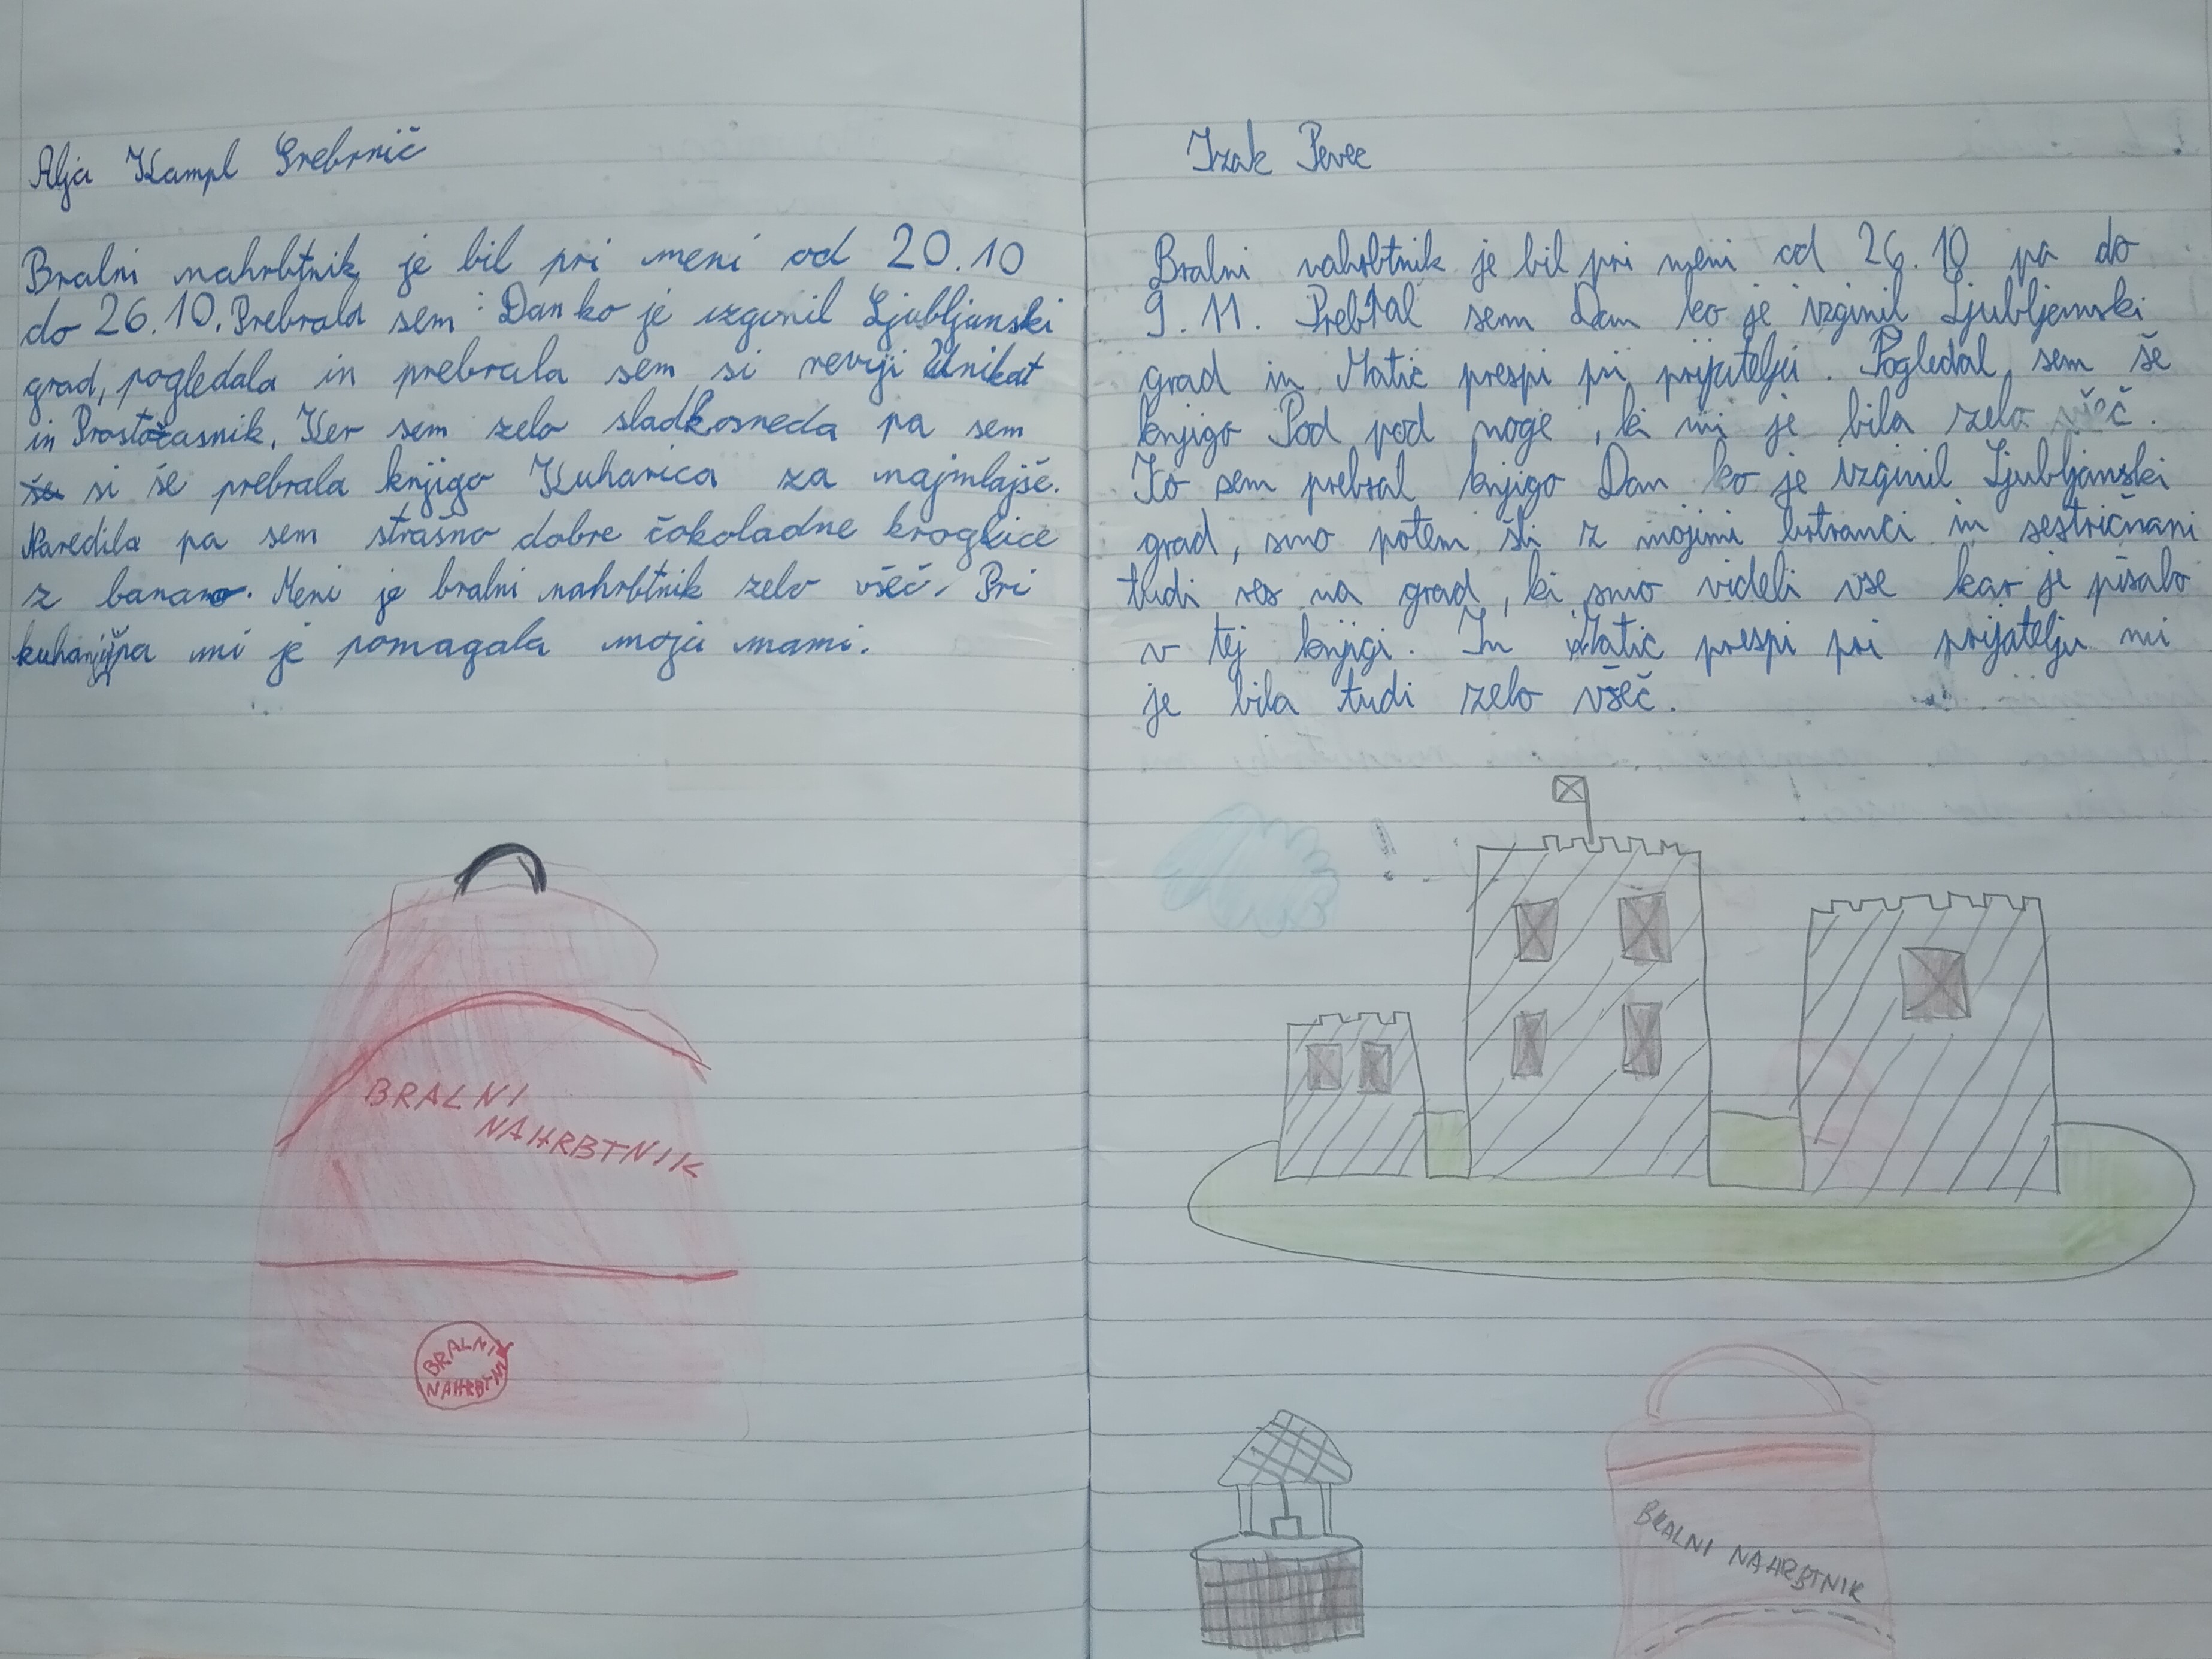 Alja Kampl Srebrnič
Bralni nahrbtnik je bil pri meni od 20.10
do 26.10. Prebrala sem: Dan ko je izginil Ljubljanski
grad, pogledala in prebrala sem si reviji Unikat
in Prostočasnik. Ker sem zelo sladkosneda pa sem
si še prebrala knjigo Kuharica za najmlajše.
Naredila pa sem strašno dobre čokoladne kroglice
z banano. Meni je bralni nahrbtnik zelo všeč. Pri
kuhanju pa mi je pomagala moja mami.
BRALNI
NAHRBTNIK
BRALNI
NAHRBTNI
Izak Pevec
Bralni nahrbtnik je bil pri meni od 26.10 pa do
9.11. Prebral sem Dan ko je izginil Ljubljanski
grad in Matic prespi pri prijatelju. Pogledal sem še
knjigo Pod pod noge, ki mi je bila zelo všeč.
Ko sem prebral knjigo Dan ko je izginil Ljubljanski
grad, smo potem šli z mojimi bratranci in sestričnami
tudi res na grad, ki smo videli vse kar je pisalo
v tej knjigi. In Matic prespi pri prijatelju mi
je bila tudi zelo všeč.
BRALNI NAHRBTNIK